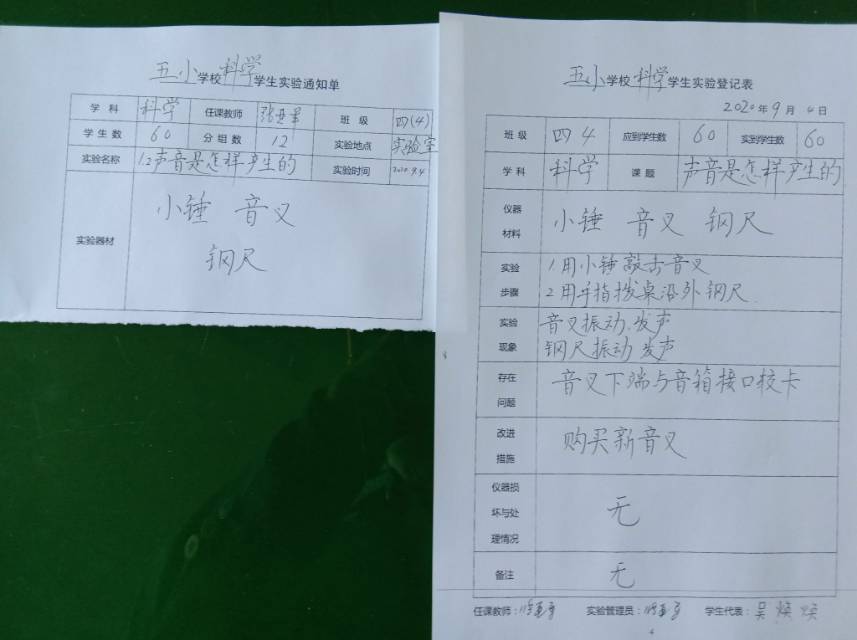 五小学校科学学生实验通知单
学科 科学 任课教师 班级 四(4)
学生数 60 分组数 12 实验地点 实验室
实验名称 1.2声音是怎样产生的 实验时间 2020.9.4
实验器材
小锤 音叉
钢尺
五小学校科学学生实验登记表
2020年9月4日
班级 四4 应到学生数 60 实到学生数 60
学科 科学 课题 声音是怎样产生的
仪器材料 小锤 音叉 钢尺
实验步骤
1用小锤敲击音叉
2用手指拨桌沿外钢尺
实验现象
音叉振动.发声
钢尺振动发声
存在问题 音叉下端与音箱接口较卡
改进措施 购买新音叉
仪器损坏与处理情况 无
备注 无
任课教师: 实验管理员: 学生代表:吴焕焕